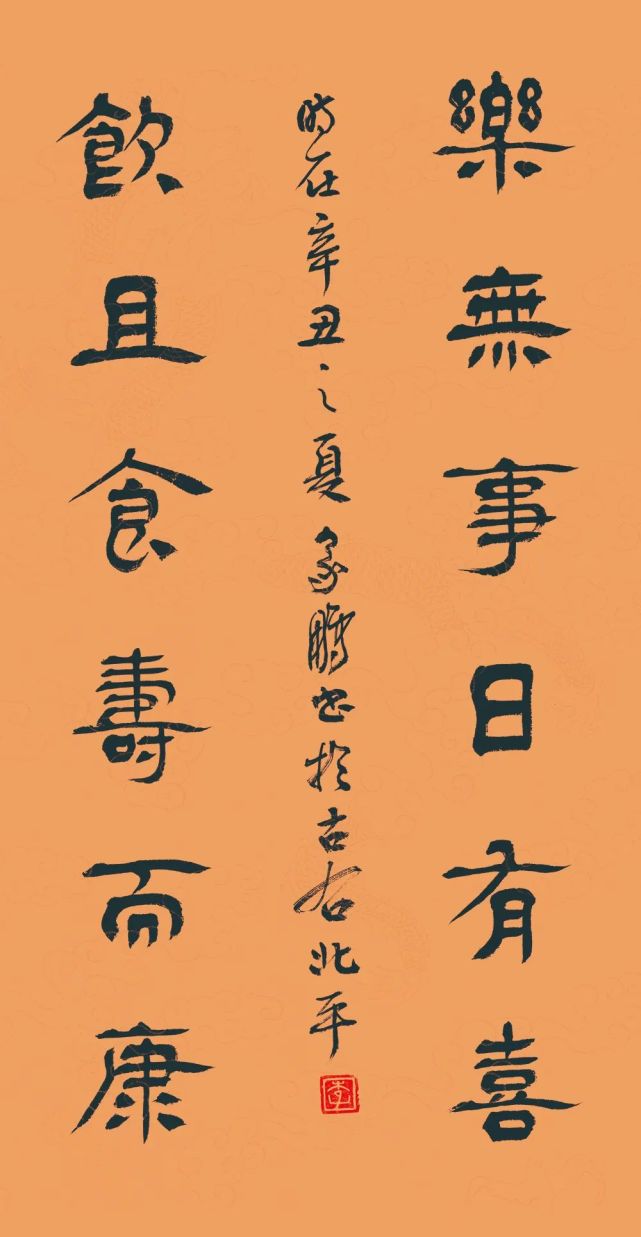 樂無事日有喜
時在辛丑之夏象鵬書於古右北平
飲且食壽而康
李